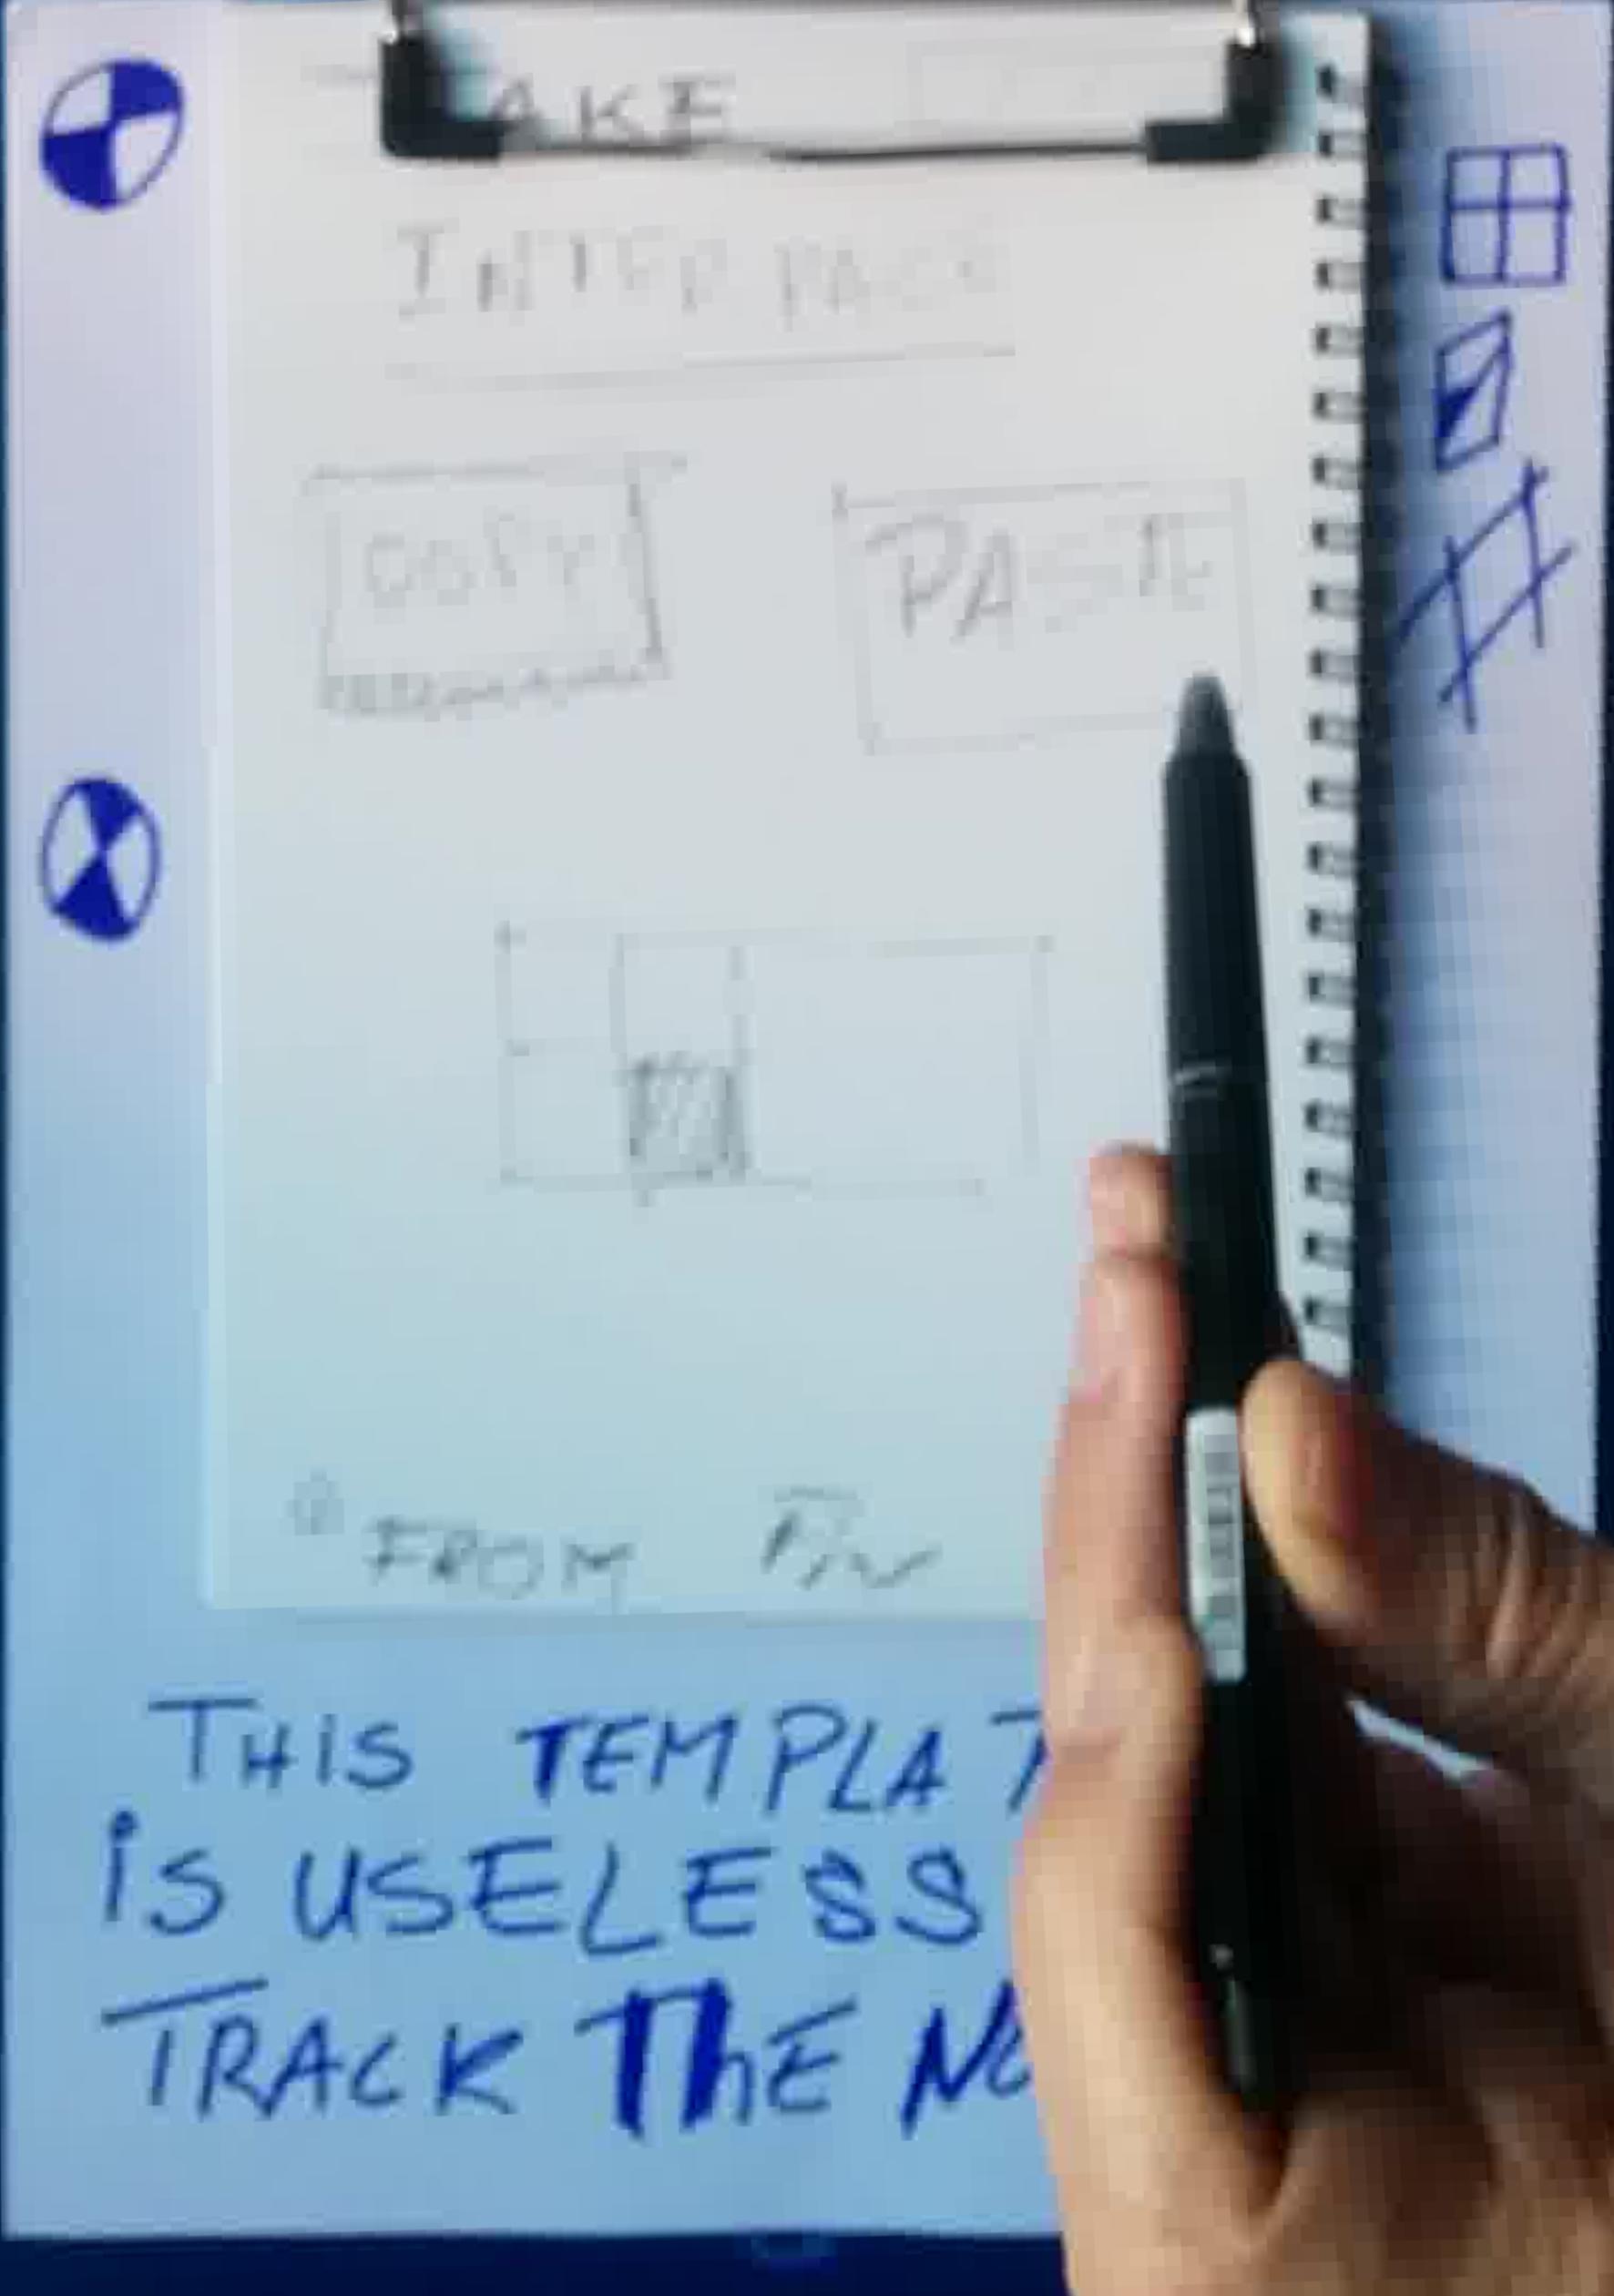 AKE
INTERFACE
COPY PASTE
FROM
THIS TEMPLAT
iS USELESS
TRACK ThE NO